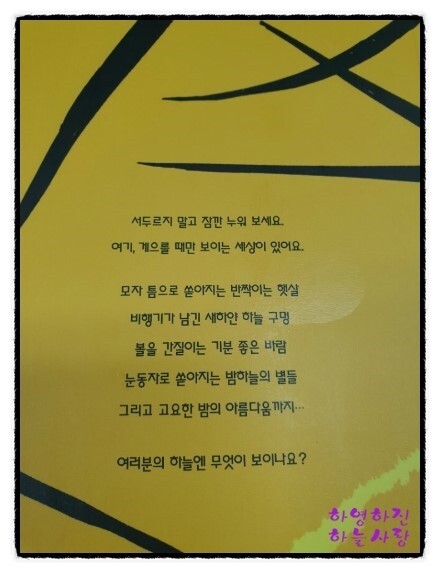 서두르지 말고 잠깐 누워 보세요.
여기, 게으를 때만 보이는 세상이 있어요.
모자 틈으로 쏟아지는 반짝이는 햇살
비행기가 남긴 새하얀 하늘 구멍
볼을 간질이는 기분 좋은 바람
눈동자로 쏟아지는 밤하늘의 별들
그리고 고요한 밤의 아름다움까지…
여러분의 하늘엔 무엇이 보이나요?
하영하진
하늘사랑